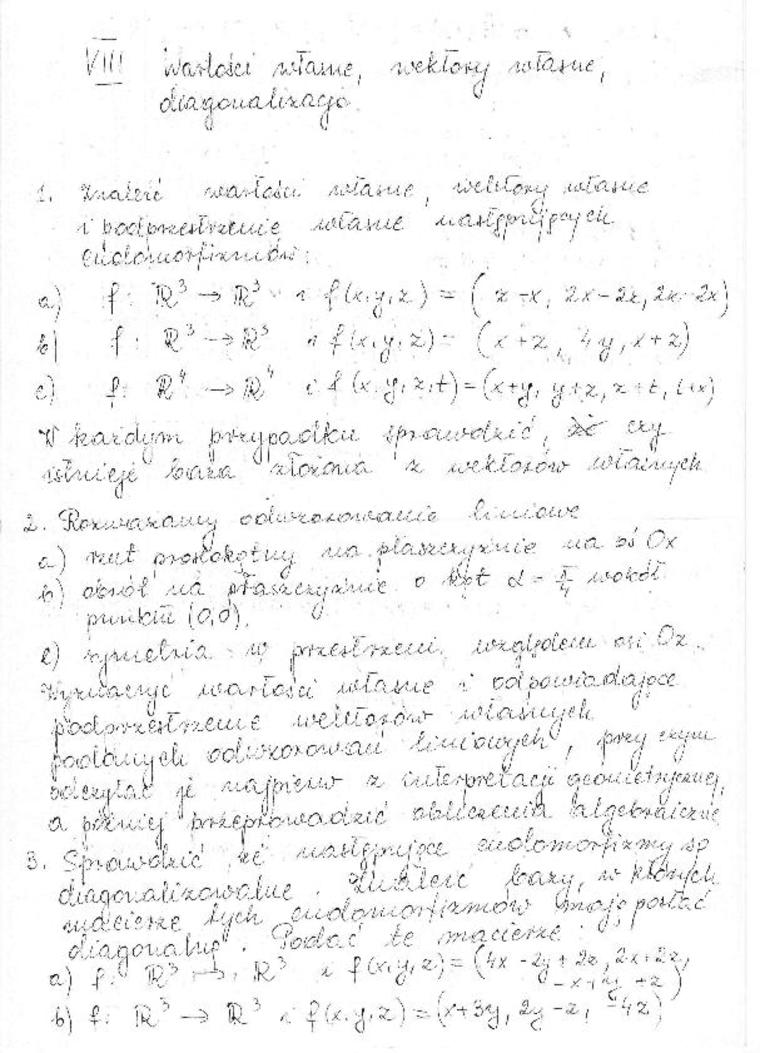 VIII Wartości własne, wektory własne,
diagonalizacja
1. Znaleźć wartości własne, wektory własne
i podprzestrzenie własne następujących
endomorfizmów:
a) f: R³ → R³ i f(x,y,z) = (z-x, 2x-2z, 2x-2x)
b) f: R³ → R³ i f(x,y,z) = (x+z, 4y, x+z)
c) f: R⁴ → R⁴ i f(x,y,z,t) = (x+y, y+z, z+t, t+x)
W każdym przypadku sprawdzić, czy
istnieje baza złożona z wektorów własnych
2. Rozważamy odwzorowanie liniowe
a) rzut prostokątny na płaszczyźnie na oś Ox
b) obrót na płaszczyźnie o kąt α = π/4 wokół
punktu (0,0).
c) symetria w przestrzeni względem osi Oz.
Wyznaczyć wartości własne i odpowiadające
podprzestrzenie wektorów własnych
podanych odwzorowań liniowych, przy czym
odczytać je najpierw z interpretacji geometrycznej,
a później przeprowadzić obliczenia algebraiczne
3. Sprawdzić że następujące endomorfizmy są
diagonalizowalne. Znaleźć bazy, w których
macierze tych endomorfizmów mają postać
diagonalną. Podać te macierze:
a) f: R³ → R³ i f(x,y,z) = (4x-2y+2z, 2x+2z,
-x+y+z)
b) f: R³ → R³ i f(x,y,z) = (x+3y, 2y-z, -4z)